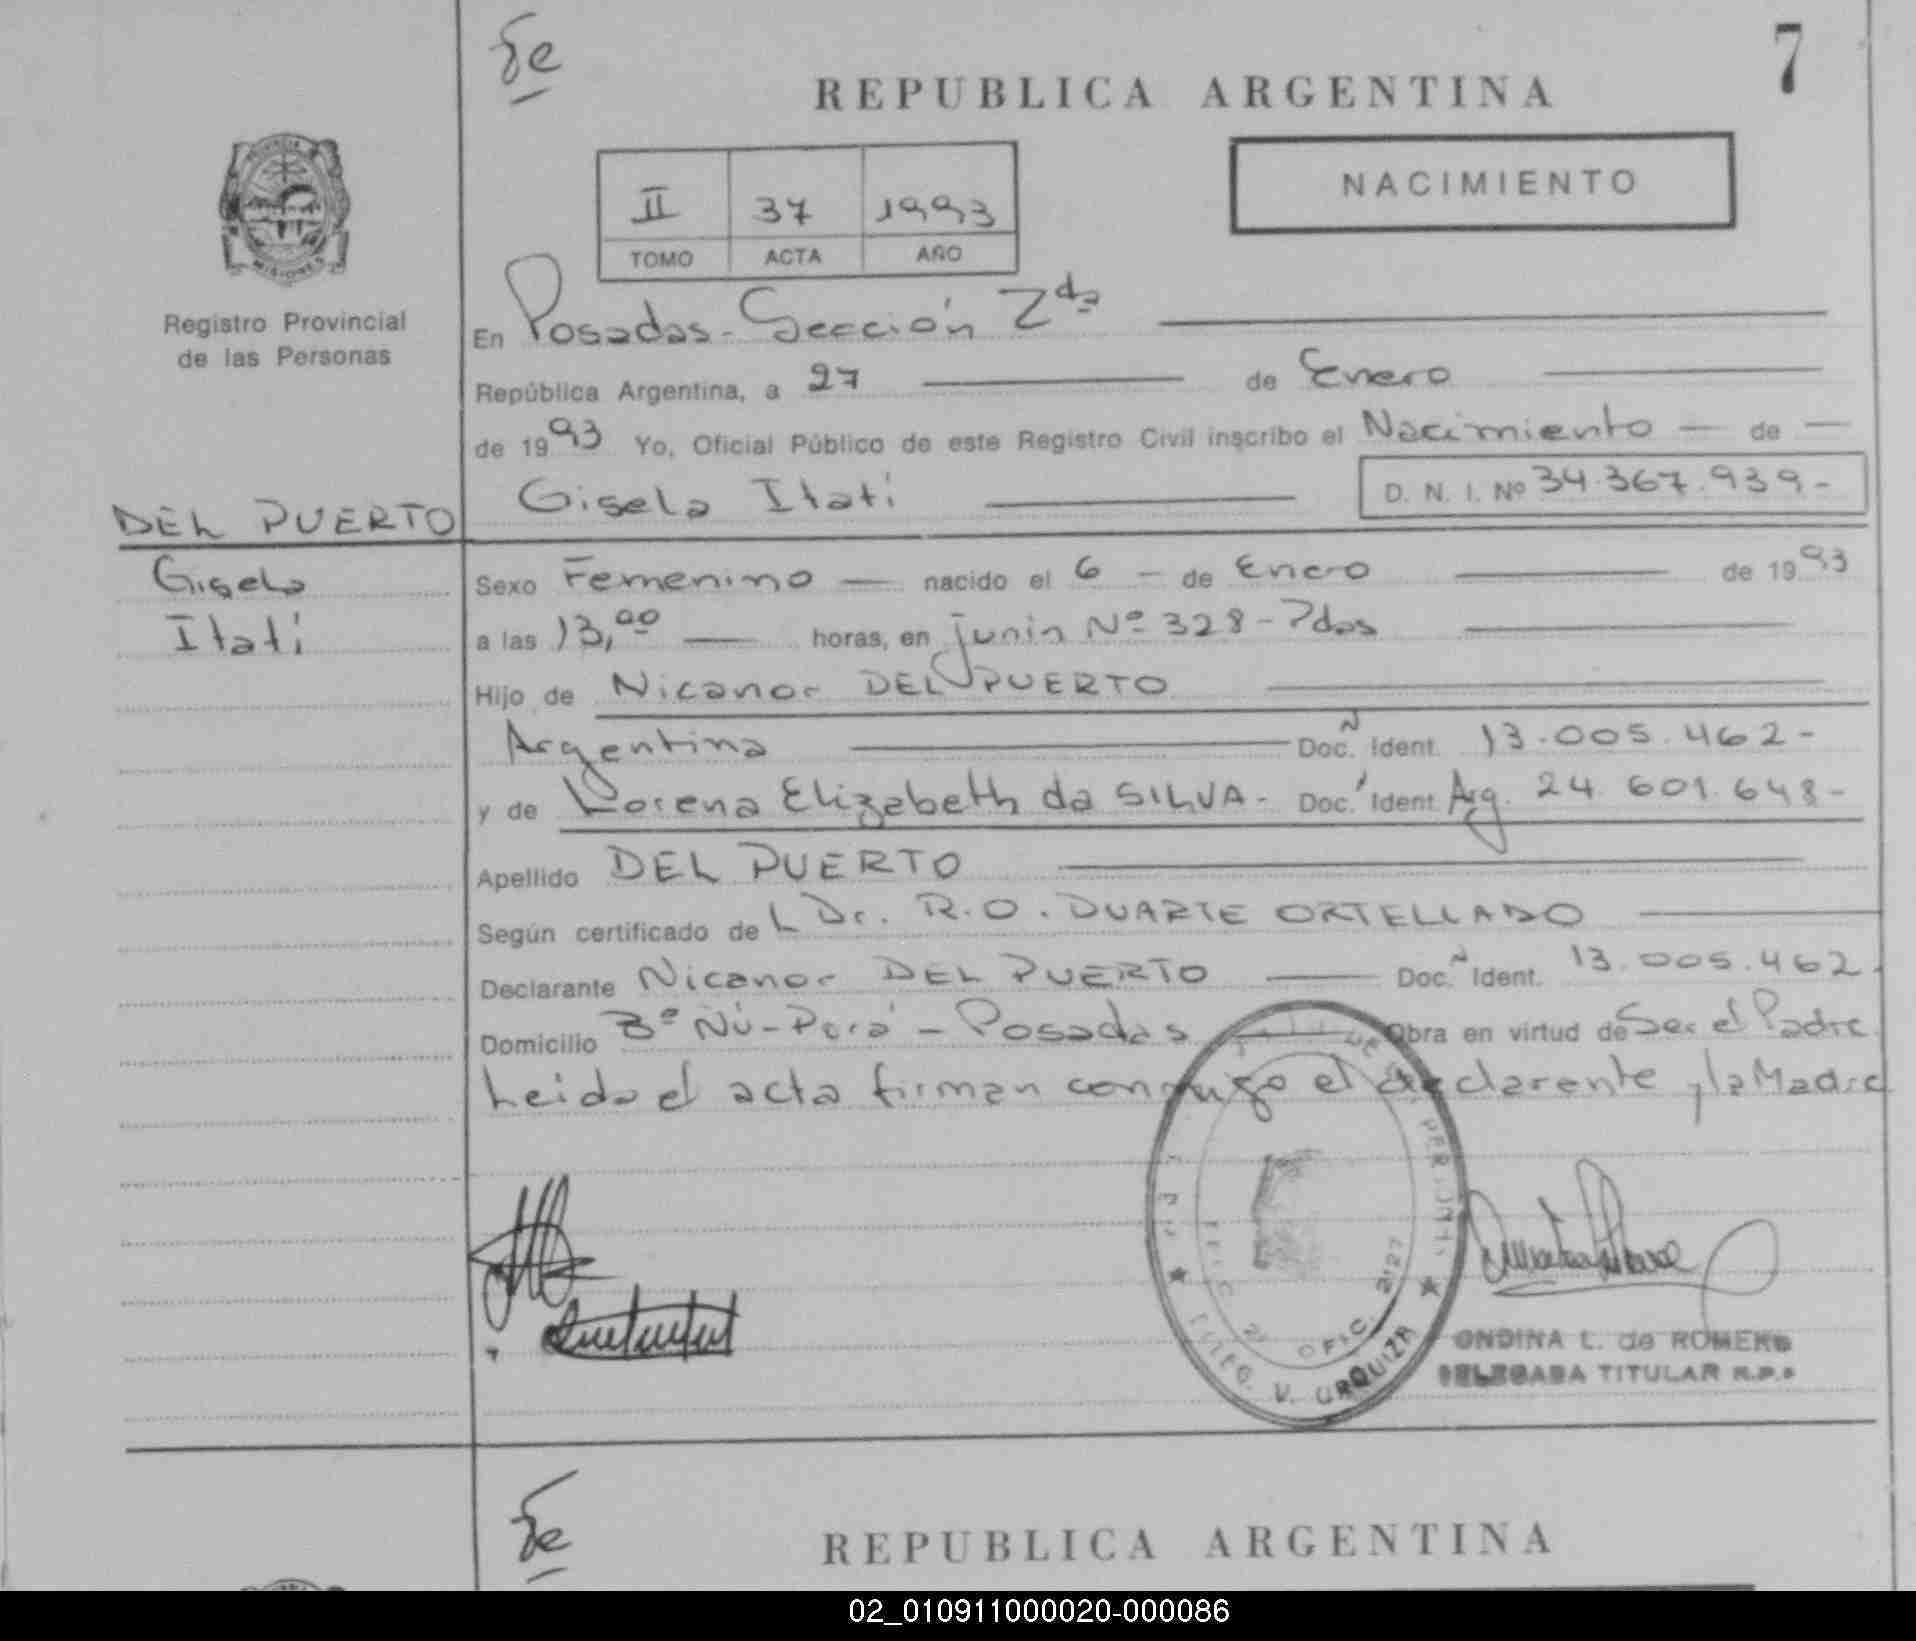 Fe
7
REPUBLICA ARGENTINA
NACIMIENTO
II 37 1993
TOMO ACTA AÑO
PROVINCIA
MISIONES
Registro Provincial
de las Personas
En Posadas - Sección 2da
República Argentina, a 27 de Enero
de 1993 Yo, Oficial Público de este Registro Civil inscribo el Nacimiento — de —
Gisela Itatí D. N. I. Nº 34.367.939-
DEL PUERTO
Gisela
Itatí
Sexo Femenino — nacido el 6 - de Enero de 1993
a las 13,00 — horas, en Junín Nº 328 - Pdas
Hijo de Nicanor DEL PUERTO
Argentina Doc. Ident. 13.005.462-
y de Lorena Elizabeth da SILVA - Doc. Ident. Arg. 24.601.648-
Apellido DEL PUERTO
Según certificado de L Dr. R.O. DUARTE ORTELLADO
Declarante Nicanor DEL PUERTO — Doc. Ident. 13.005.462-
Domicilio Bº Ñú-Porá - Posadas Obra en virtud de Ser el Padre
Leida el acta firman conmigo el declarente y la Madre
OFIC. 2127
V. URQUIZA
ONDINA L. de ROMERO
DELEGADA TITULAR R.P.P
Fe
REPUBLICA ARGENTINA
02_010911000020-000086